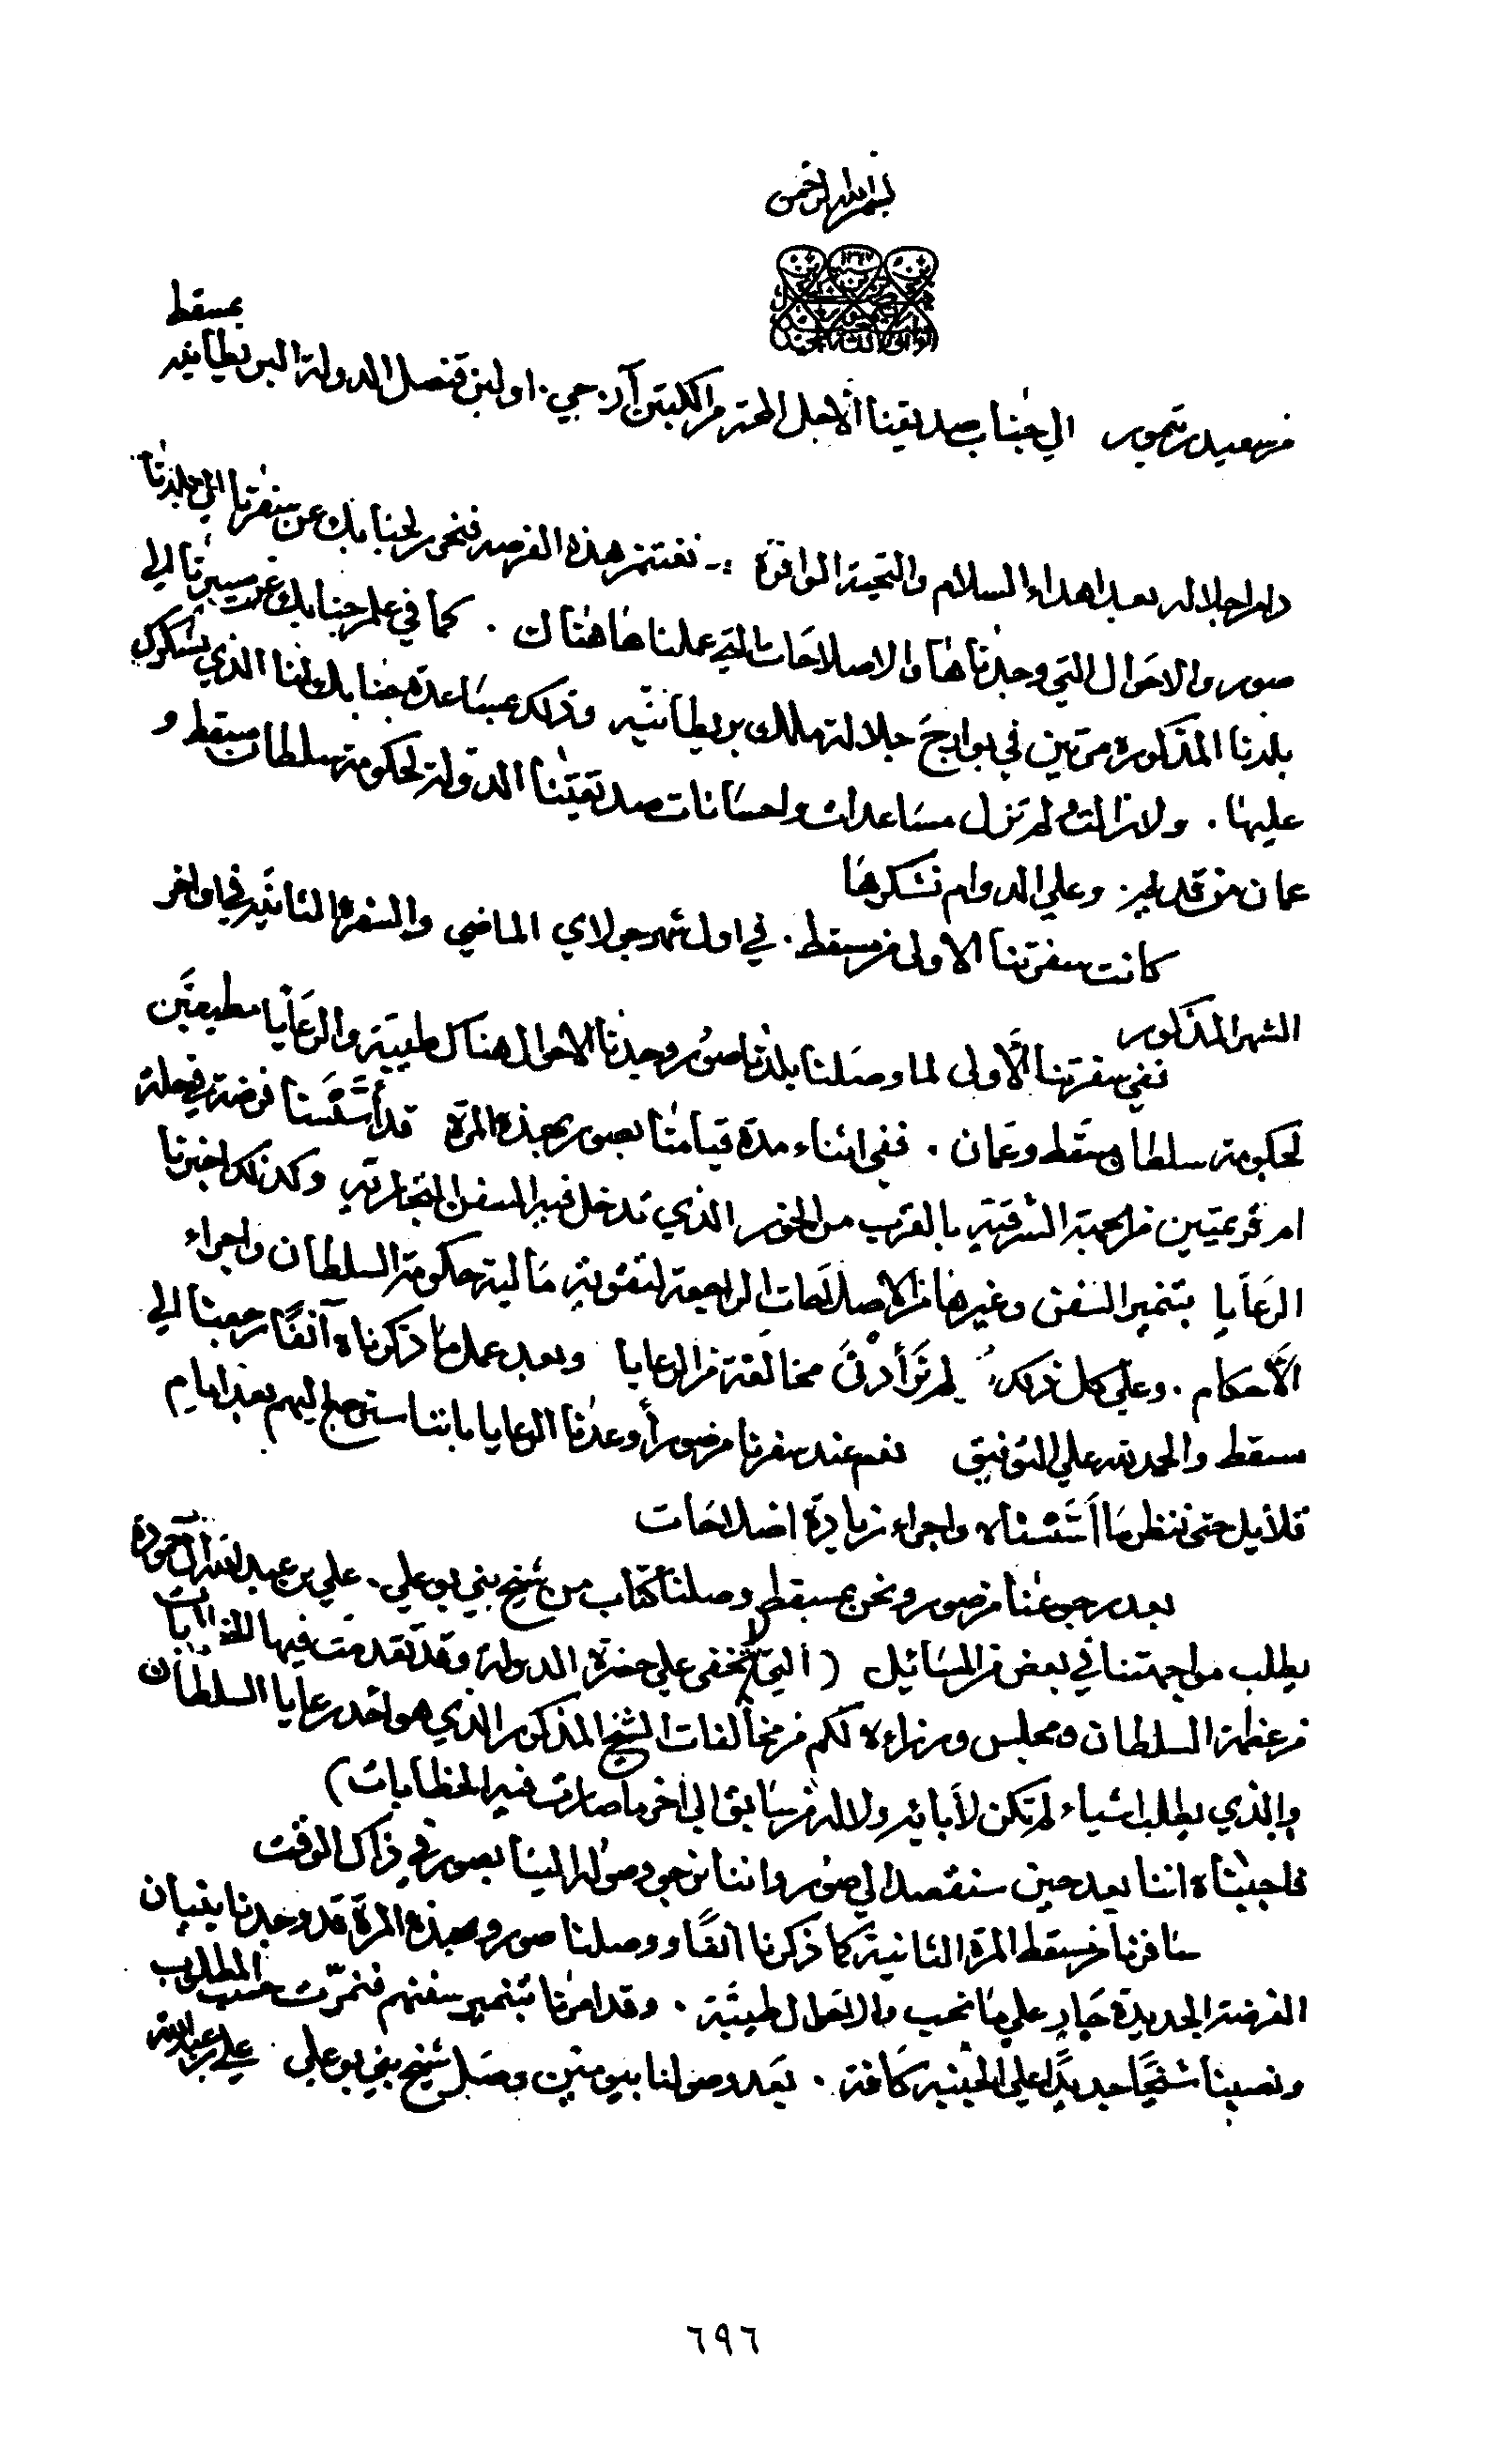 بسم الله الرحمن
من سعيد بن تيمور الى جناب صديقنا الأجل المحترم الكبتن آر. جي. اولبن قنصل الدولة البريطانيه بمسقط
دام اجلاله بعد اهداء السلام والتحية الوافرة :- نغتنم هذه الفرصه فنخبر لجنابك عن سفرتنا الى بلدتنا
صور والاحوال التي وجدناها والاصلاحات التي عملناها هناك . كما في علم جنابك عن مسيرنا الى
بلدنا المذكوره مرتين في بوارج جلالة ملك بريطانيه وذلك بمساعدة جنابك لنا الذي نشكرك
عليها . ولا زالت ولم تزل مساعدات واحسانات صديقتنا الدولة لحكومة سلطان مسقط و
عمان من قديم وعلى الدوام نشكرها
كانت سفرتنا الاولى من مسقط . في اول شهر جولاي الماضي والسفرة الثانيه في اواخر
الشهر المذكور
ففي سفرتنا الأولى لما وصلنا بلدنا صور وجدنا الاحوال هناك طيبة والرعايا مطيعين
لحكومة سلطان مسقط وعمان . ففي اثناء مدة قيامنا بصور بهذه المرة قد أسسنا فرضة في محلة
ام قريمتين من الجهة الشرقية بالقرب من الخور الذي تدخل فيه السفن التجارية وكذلك اخبرنا
الرعايا بتنمير السفن وغيرها من الاصلاحات الراجعة لتقوية مالية حكومة السلطان واجراء
الأحكام . وعلى كل ذلك لم نر أدنى مخالفة من الرعايا وبعد عمل ما ذكرناه آنفًا رجعنا الى
مسقط والحمد لله على التوفيق نعم عند سفرنا من صور أوعدنا الرعايا باننا سنرجع اليهم بعد ايام
قلايل حتى ننظر ما أسسناه واجراء زيادة اصلاحات
بعد رجوعنا من صور ونحن بمسقط وصلنا كتاب من شيخ بني بو علي. علي بن عبدالله آل حموده
يطلب مواجهتنا في بعض من المسائيل (التي لا تخفى على حضرة الدولة وقد تقدمت فيها
من عظمة السلطان ومجلس وزراءه لكم من مخالفات الشيخ المذكور الذي هو احد رعايا السلطان
والذي يطلب اشياء لم تكن لأبائه ولا له من سابق الى اخر ما صارت فيه الخطابات)
فاجبناه اننا بعد حين سنقصد الى صور واننا نرجو وصوله الينا بصور في ذاك الوقت
سافرنا من مسقط المرة الثانية كما ذكرنا انفًا ووصلنا صور وبهذه المرة قد وجدنا بنيان
الفرضة الجديدة جارٍ على ما نحب والاحوال طيبة . وقد امرنا بتنمير سفنهم فنمرت حسب المطلوب
ونصبنا شيخًا جديدًا على الجنبه كافة . بعد وصولنا بيومين وصل شيخ بني بو علي علي بن عبدالله
٦٩٦